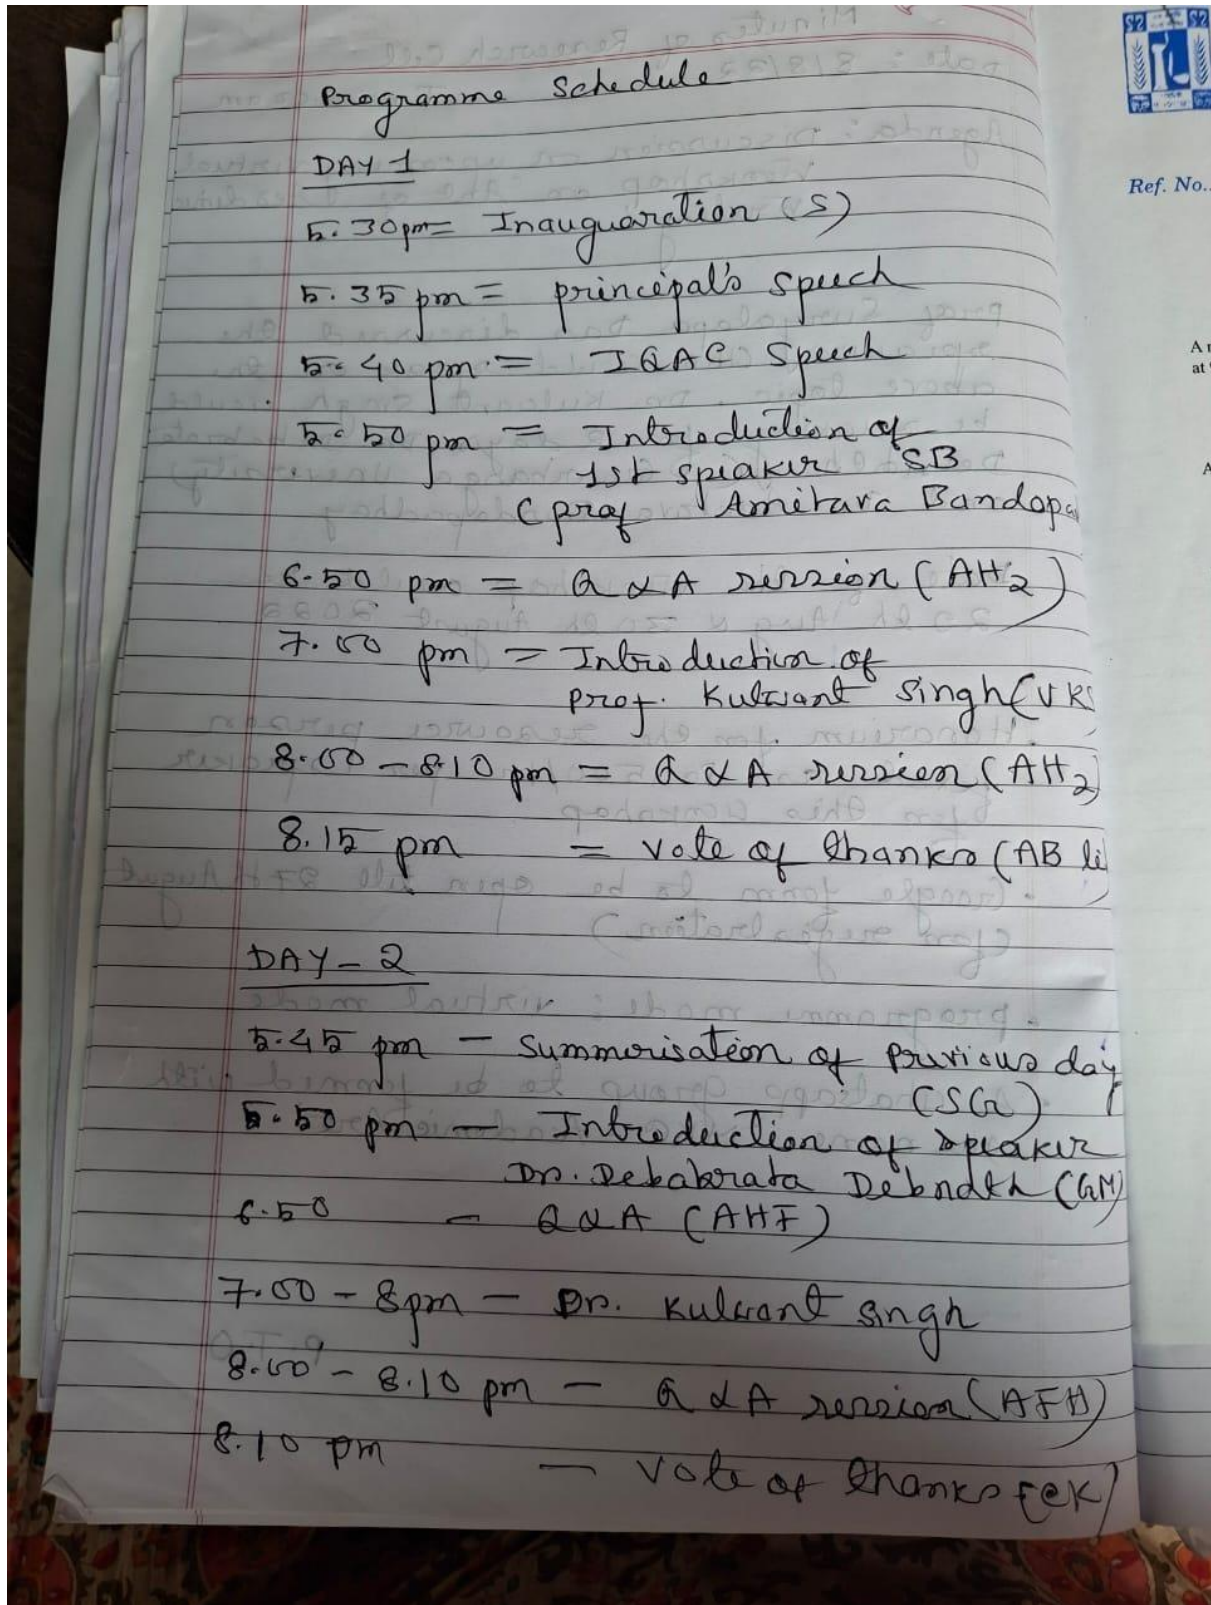 Programme Schedule
DAY 1
5.30pm = Inauguaration (S)
5.35 pm = principal's speech
5.40 pm = IQAC Speech
5.50 pm = Introduction of
1st speaker SB
(prof Amitava Bandopa
6.50 pm = Q & A session (AH2)
7.00 pm = Introduction of
prof. Kulwant Singh (VKS
8.00 - 8.10 pm = Q & A session (AH2)
8.15 pm = vote of thanks (AB
DAY - 2
5.45 pm - Summerisation of previous day
(SG)
5.50 pm - Introduction of speaker
Dr. Debabrata Debnath (GM)
6.50 - Q & A (AHF)
7.00 - 8pm - Dr. Kulwant Singh
8.00 - 8.10 pm - Q & A session (AFH)
8.10 pm - vote of thanks
Ref. No..